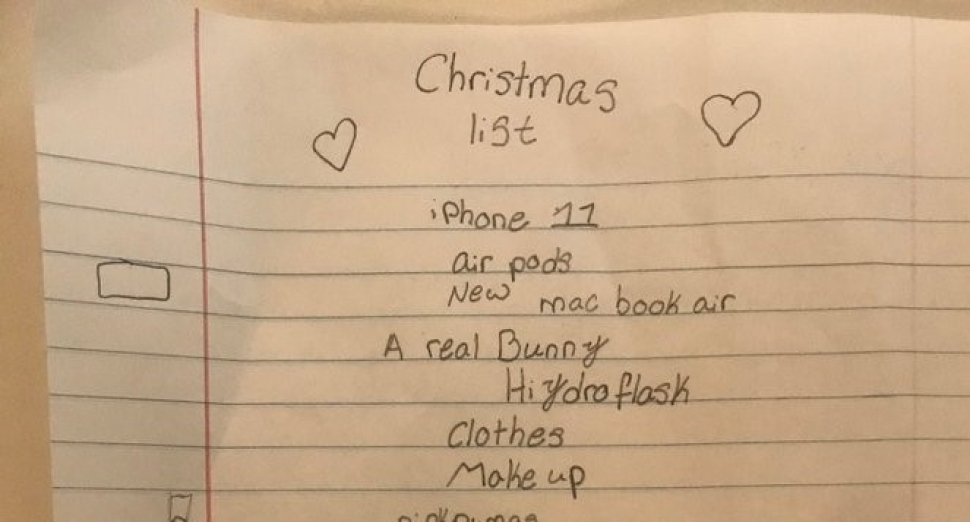 Christmas
list
iPhone 11
air pods
New mac book air
A real Bunny
Hiydroflask
Clothes
Make up